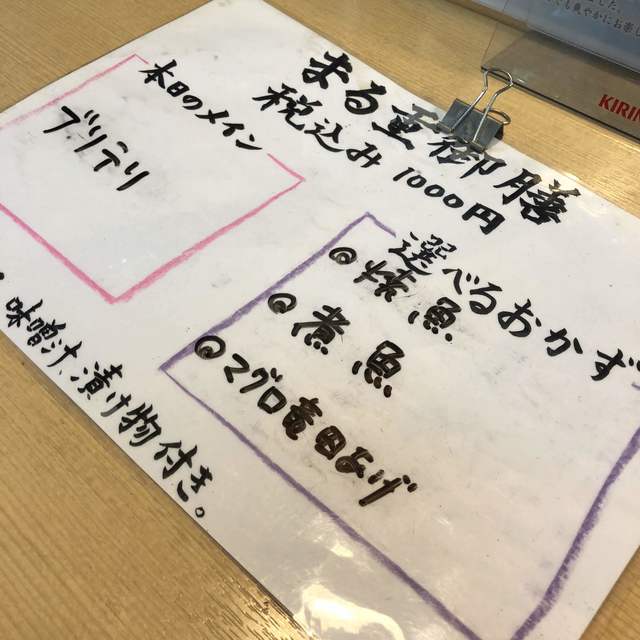 まる重御膳
税込み1000円
本日のメイン
ブリテリ
選べるおかず
◎焼魚
◎煮魚
◎マグロ竜田あげ
味噌汁、漬け物付き。
KIRIN